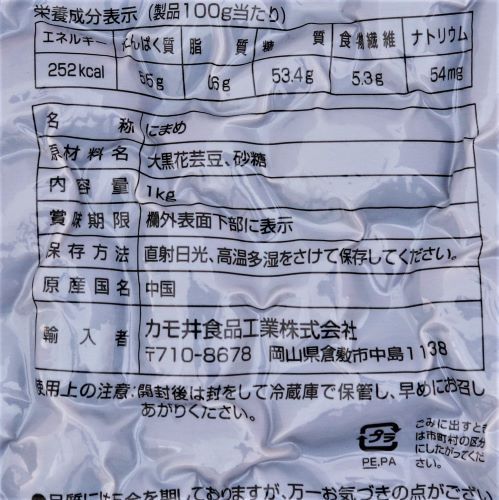 栄養成分表示(製品100g当たり)
エネルギー たんぱく質 脂質 糖質 食物繊維 ナトリウム
252kcal 53.4g 5.3g 54mg
名称 にまめ
原材料名 大黒花芸豆、砂糖
内容量 1kg
賞味期限 欄外表面下部に表示
保存方法 直射日光、高温多湿をさけて保存してください。
原産国名 中国
輸入者 カモ井食品工業株式会社
〒710-8678 岡山県倉敷市中島1138
使用上の注意:開封後は封をして冷蔵庫で保管し、早めにお召し
あがりください。
プラ
PE,PA
ごみに出すとき
は市町村の区分
にしたがってく
ださい。
●品質には万全を期しておりますが、万一お気づきの点がござい